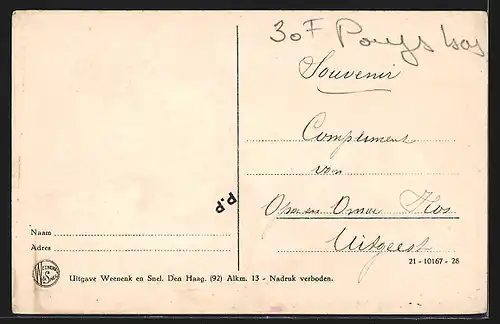 30F Pays bas
Souvenir
Compliment
van
Opa en Oma Kos
Uitgeest
p.p
Naam
Adres
WEENENK & SNEL
Uitgave Weenenk en Snel. Den Haag. (92) Alkm. 13 - Nadruk verboden.
21-10167-28